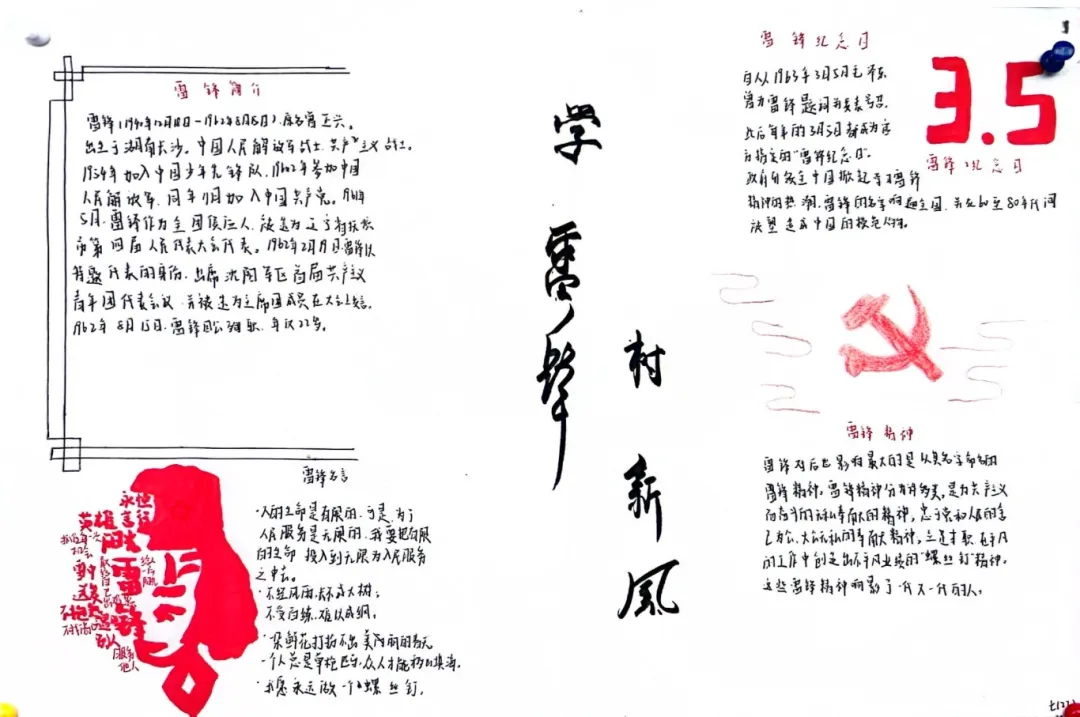 雷锋简介
雷锋(1940年12月18日-1962年8月15日),原名雷正兴。
出生于湖南长沙,中国人民解放军战士,共产主义战士。
1954年加入中国少年先锋队,1960年参加中国
人民解放军,同年11月加入中国共产党。1961年
5月,雷锋作为全团候选人,被选为辽宁省抚顺
市第四届人民代表大会代表。1962年2月19日,雷锋以
特邀代表的身份,出席沈阳军区首届共产主义
青年团代表会议,并被选为主席团成员在大会上发言。
1962年8月15日,雷锋因公殉职,年仅22岁。
學雷鋒
村新风
雷锋纪念日
自从1963年3月5日毛泽东
曾为雷锋题词并发表
此后每年的3月5日都成为官
方指定的"雷锋纪念日"。
3.5
雷锋纪念日
政府会在全中国掀起学习雷锋
精神的热潮,雷锋的名字响遍全国,并在60至80年代间
被塑造成中国的模范人物。
雷锋精神
雷锋对后世影响最大的是以其名字命名的
雷锋精神,雷锋精神分为
的无私奉献的精神,忠于党和人民的舍
己为公、大公无私的奉献精神,立足本职、在平凡
的工作中创造出不平凡业绩的"螺丝钉"精神。
这些雷锋精神影响了一代又一代的人。
雷锋名言
·人的生命是有限的,可是,为了
人民服务是无限的,我要把有限
的生命投入到无限为人民服务
之中去。
·不经风雨,长不成大树;
不受百练,难以成钢。
·一朵鲜花打扮不出美丽的春天
一个人总是单枪匹马,众人才能移山填海。
·我愿永远做一个螺丝钉。
永恒
英雄
雷锋
别人
服务
他人